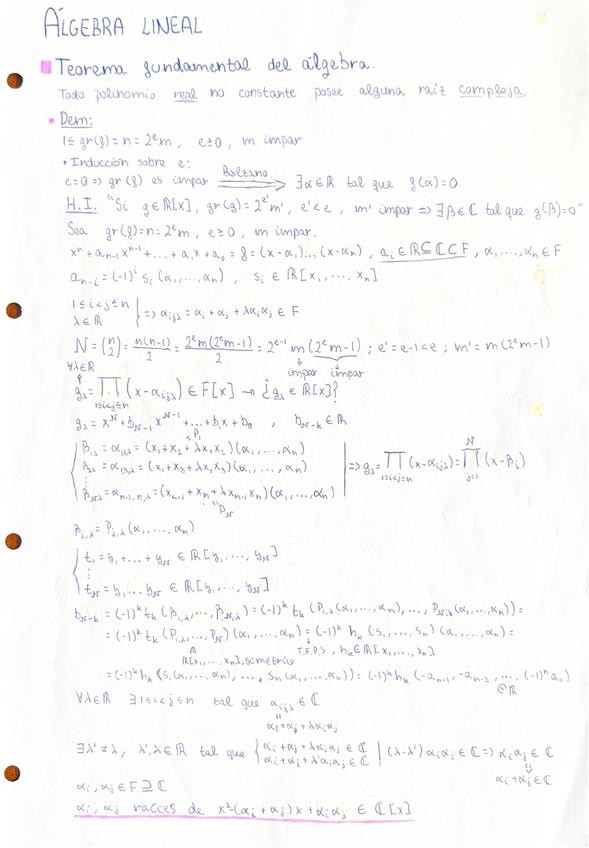 ÁLGEBRA LINEAL
Teorema fundamental del álgebra.
Todo polinomio real no constante posee alguna raíz compleja.
• Dem:
1≤ gr(f) = n = 2^e m, e≥0, m impar
• Inducción sobre e:
e=0 => gr(f) es impar =Bolzano=> ∃α∈ℝ tal que f(α)=0
H.I. "Si g∈ℝ[x], gr(g)=2^e' m', e'<e, m' impar => ∃β∈ℂ tal que g(β)=0"
Sea gr(f)=n=2^e m, e≥0, m impar.
x^n + a_{n-1} x^{n-1} + ... + a_1 x + a_0 = f = (x-α_1)...(x-α_n), a_i∈ℝ⊆ℂ⊂F, α_1,...,α_n∈F
a_{n-i} = (-1)^i s_i(α_1,...,α_n), s_i∈ℝ[x_1,...,x_n]
1≤i<j≤n
λ∈ℝ | => α_{ijλ} = α_i+α_j+λα_iα_j ∈ F
N = (n 2) = n(n-1)/2 = 2^e m(2^e m-1)/2 = 2^{e-1} m(2^e m-1) ; e'=e-1<e ; m'=m(2^e m-1)
impar impar
∀λ∈ℝ
g_λ = ∏_{1≤i<j≤n} (x-α_{ijλ}) ∈ F[x] → ¿g_λ∈ℝ[x]?
g_λ = x^N + b_{N-1} x^{N-1} + ... + b_1x + b_0, b_{N-k}∈ℝ
"P_1
β_{1,λ} = α_{12λ} = (x_1+x_2+λx_1x_2)(α_1,...,α_n)
β_{2λ} = α_{13λ} = (x_1+x_3+λx_1x_3)(α_1,...,α_n) => g_λ = ∏_{1≤i<j≤n} (x-α_{ijλ}) = ∏_{j=1}^N (x-β_j)
⋮
β_{Nλ} = α_{n-1,n,λ} = (x_{n-1}+x_n+λx_{n-1}x_n)(α_1,...,α_n)
"P_N
β_{j,λ} = P_{j,λ}(α_1,...,α_n)
t_1 = y_1+...+y_N ∈ℝ[y_1,...,y_N]
⋮
t_N = y_1...y_N ∈ℝ[y_1,...,y_N]
b_{N-k} = (-1)^k t_k(β_{1,λ},...,β_{N,λ}) = (-1)^k t_k(P_{1,λ}(α_1,...,α_n),...,P_{N,λ}(α_1,...,α_n)) =
= (-1)^k t_k(P_{1,λ},...,P_N)(α_1,...,α_n) = (-1)^k h_k(s_1,...,s_n)(α_1,...,α_n) =
ℝ[x_1,...,x_n], simétrico T.F.P.S, h_k∈ℝ[x_1,...,x_n]
= (-1)^k h_k(s_1(α_1,...,α_n),...,s_n(α_1,...,α_n)) = (-1)^k h_k(-a_{n-1},-a_{n-2},...,(-1)^n a_0)
∈ℝ
∀λ∈ℝ ∃1≤i<j≤n tal que α_{ijλ}∈ℂ
"
α_i+α_j+λα_iα_j
∃λ'≠λ, λ',λ∈ℝ tal que { α_i+α_j+λα_iα_j∈ℂ
α_i+α_j+λ'α_iα_j∈ℂ | (λ-λ')α_iα_j∈ℂ => α_iα_j∈ℂ
⇓
α_i+α_j∈ℂ
α_i, α_j∈F⊇ℂ
α_i, α_j raíces de x²-(α_i+α_j)x+α_iα_j ∈ℂ[x]